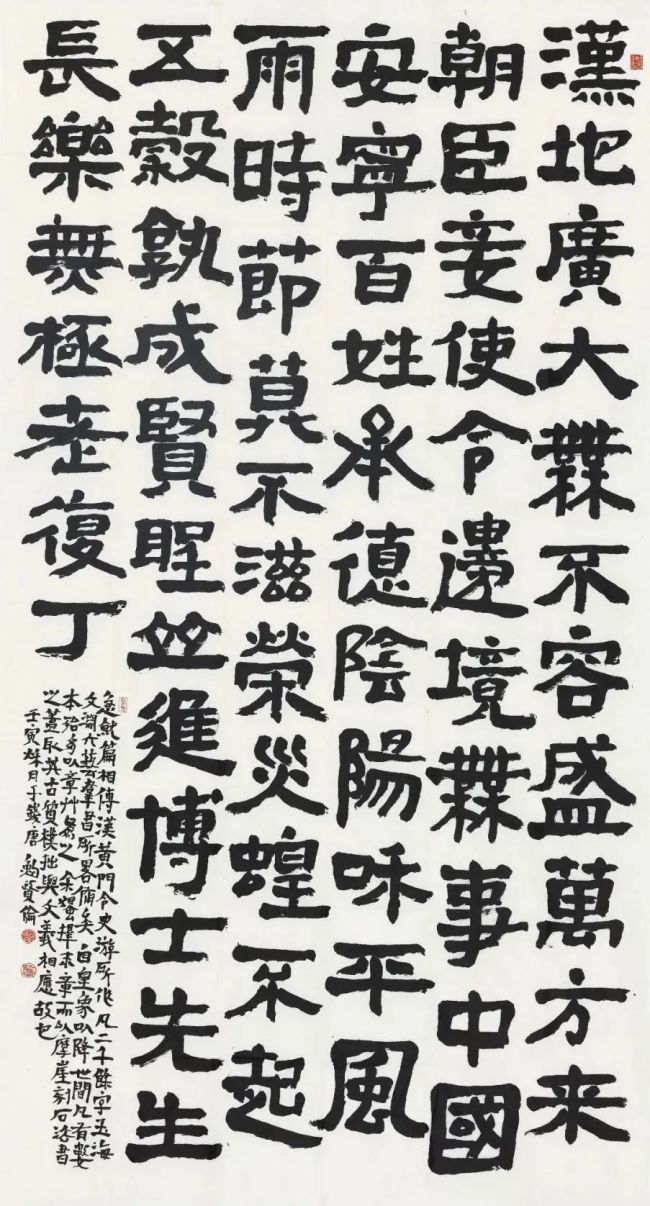 漢地廣大橆不容盛萬方来
朝臣妾使令邊境橆事中國
安寧百姓承德陰陽咊平風
雨時節莫不滋榮災蝗不起
五穀孰成賢聖並進博士先生
長樂無極老復丁
急就篇相傳漢黃門令史游所作凡二千餘字玉海
文淵六藝羣書所畧備矣自皇象以降世間凡有數
本殆多以章艸為之余獨擇末章而以摩崖刻石法書
之蓋取其古質樸拙與文義相應故也
壬寅秋日于錢唐鮑賢倫